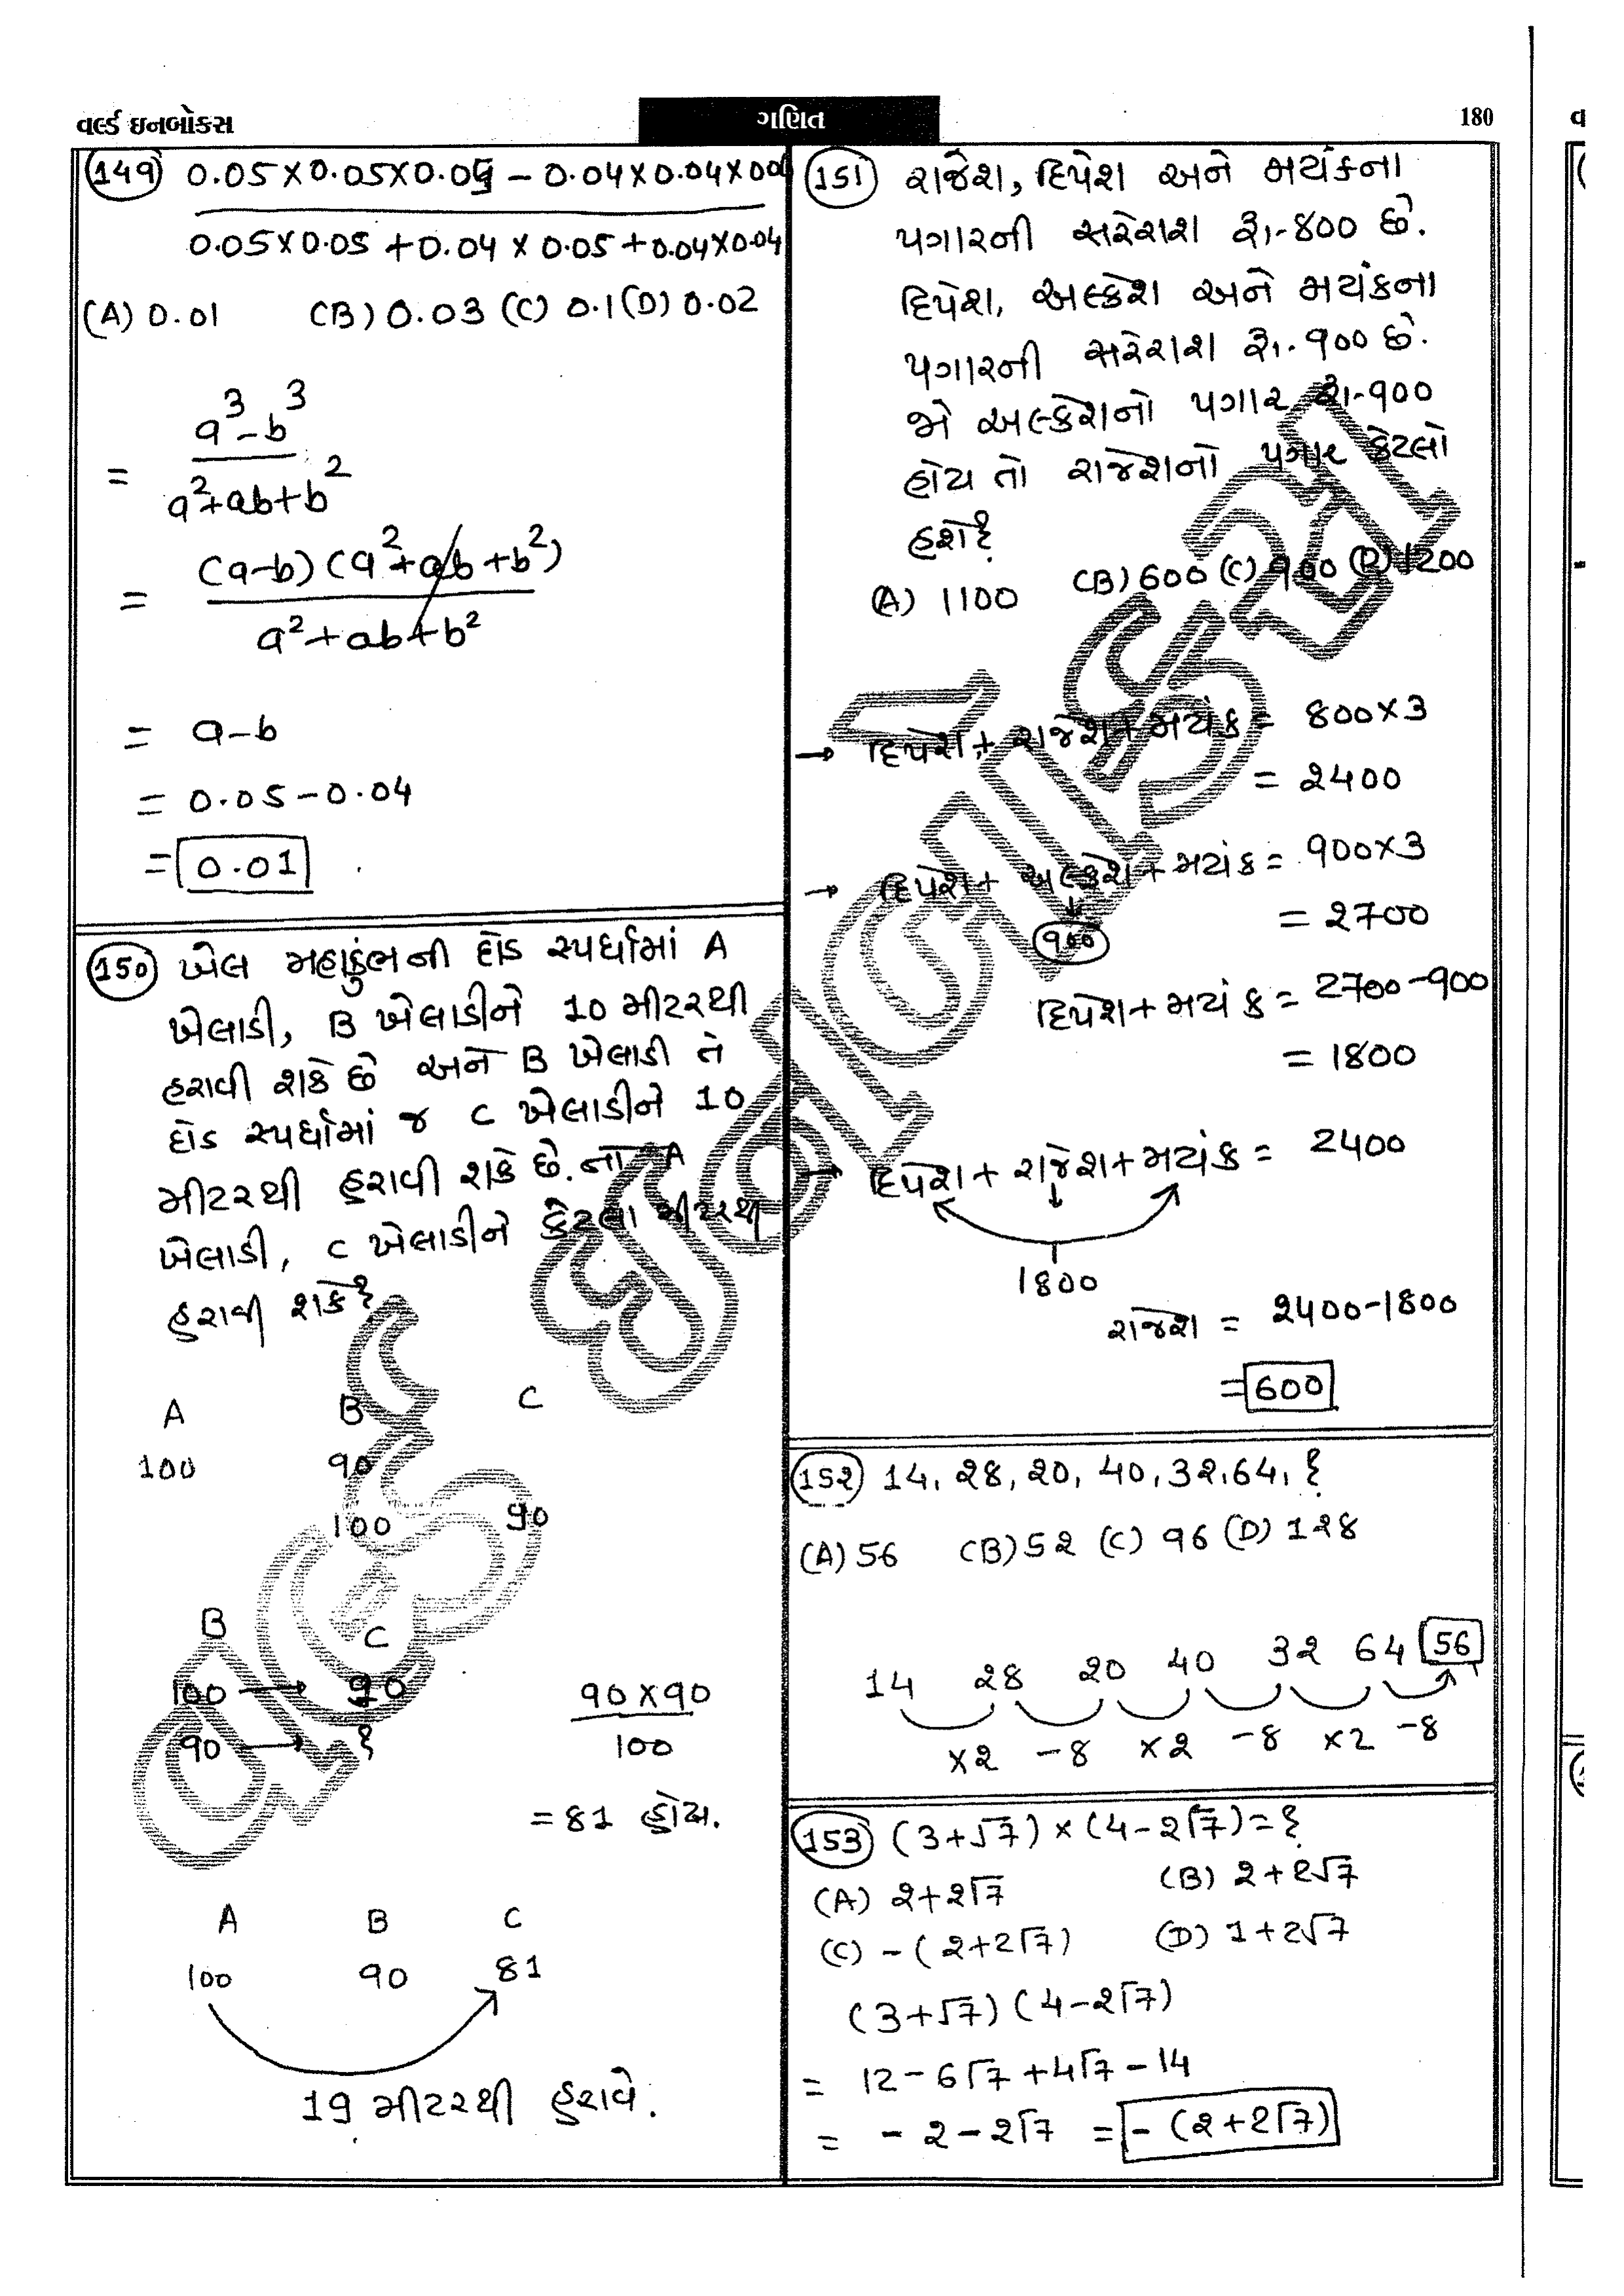 વર્લ્ડ ઇનબોક્સ
ગણિત
180
149 0.05×0.05×0.05 – 0.04×0.04×0.04
0.05×0.05 + 0.04 × 0.05 + 0.04×0.04
(A) 0.01 (B) 0.03 (C) 0.1 (D) 0.02
= a³-b³
a²+ab+b²
= (a-b) (a²+ab+b²)
a²+ab+b²
= a-b
= 0.05-0.04
= 0.01
150 ખેલ મહાકુંભની દોડ સ્પર્ધામાં A
ખેલાડી, B ખેલાડીને 10 મીટરથી
હરાવી શકે છે અને B ખેલાડી તે
દોડ સ્પર્ધામાં જ C ખેલાડીને 10
મીટરથી હરાવી શકે છે. તો A
ખેલાડી, C ખેલાડીને કેટલા મીટરથી
હરાવી શકે?
A B C
100 90
100 90
B C
100 → 90
90 → ?
90 × 90
100
= 81 હોય.
A B C
100 90 81
19 મીટરથી હરાવે.
151 રાજેશ, દિપેશ અને મયંકના
પગારની સરેરાશ રૂા.-૪00 છે.
દિપેશ, અલ્કેશ અને મયંકના
પગારની સરેરાશ રૂા.-૧00 છે.
જો અલ્કેશનો પગાર રૂા-૧00
હોય તો રાજેશનો પગાર કેટલો
હશે?
(A) 1100 (B) 600 (C) ૧00 (D) 1200
→ દિપેશ + રાજેશ + મયંક = 800×3
= 2400
→ દિપેશ + અલ્કેશ + મયંક = ૧00×3
= 2700
૧00
દિપેશ + મયંક = 2700-૧00
= 1800
→ દિપેશ + રાજેશ + મયંક = 2400
1800
રાજેશ = 2400-1800
= 600
152 14, 28, 20, 40, 32, 64, ?
(A) 56 (B) 52 (C) 96 (D) 128
14 28 20 40 32 64 56
×2 -8 ×2 -8 ×2 -8
153 (3+√7) × (4-2√7) = ?
(A) 2+2√7 (B) 2+2√7
(C) -(2+2√7) (D) 1+2√7
(3+√7) (4-2√7)
= 12-6√7+4√7-14
= -2-2√7 = -(2+2√7)